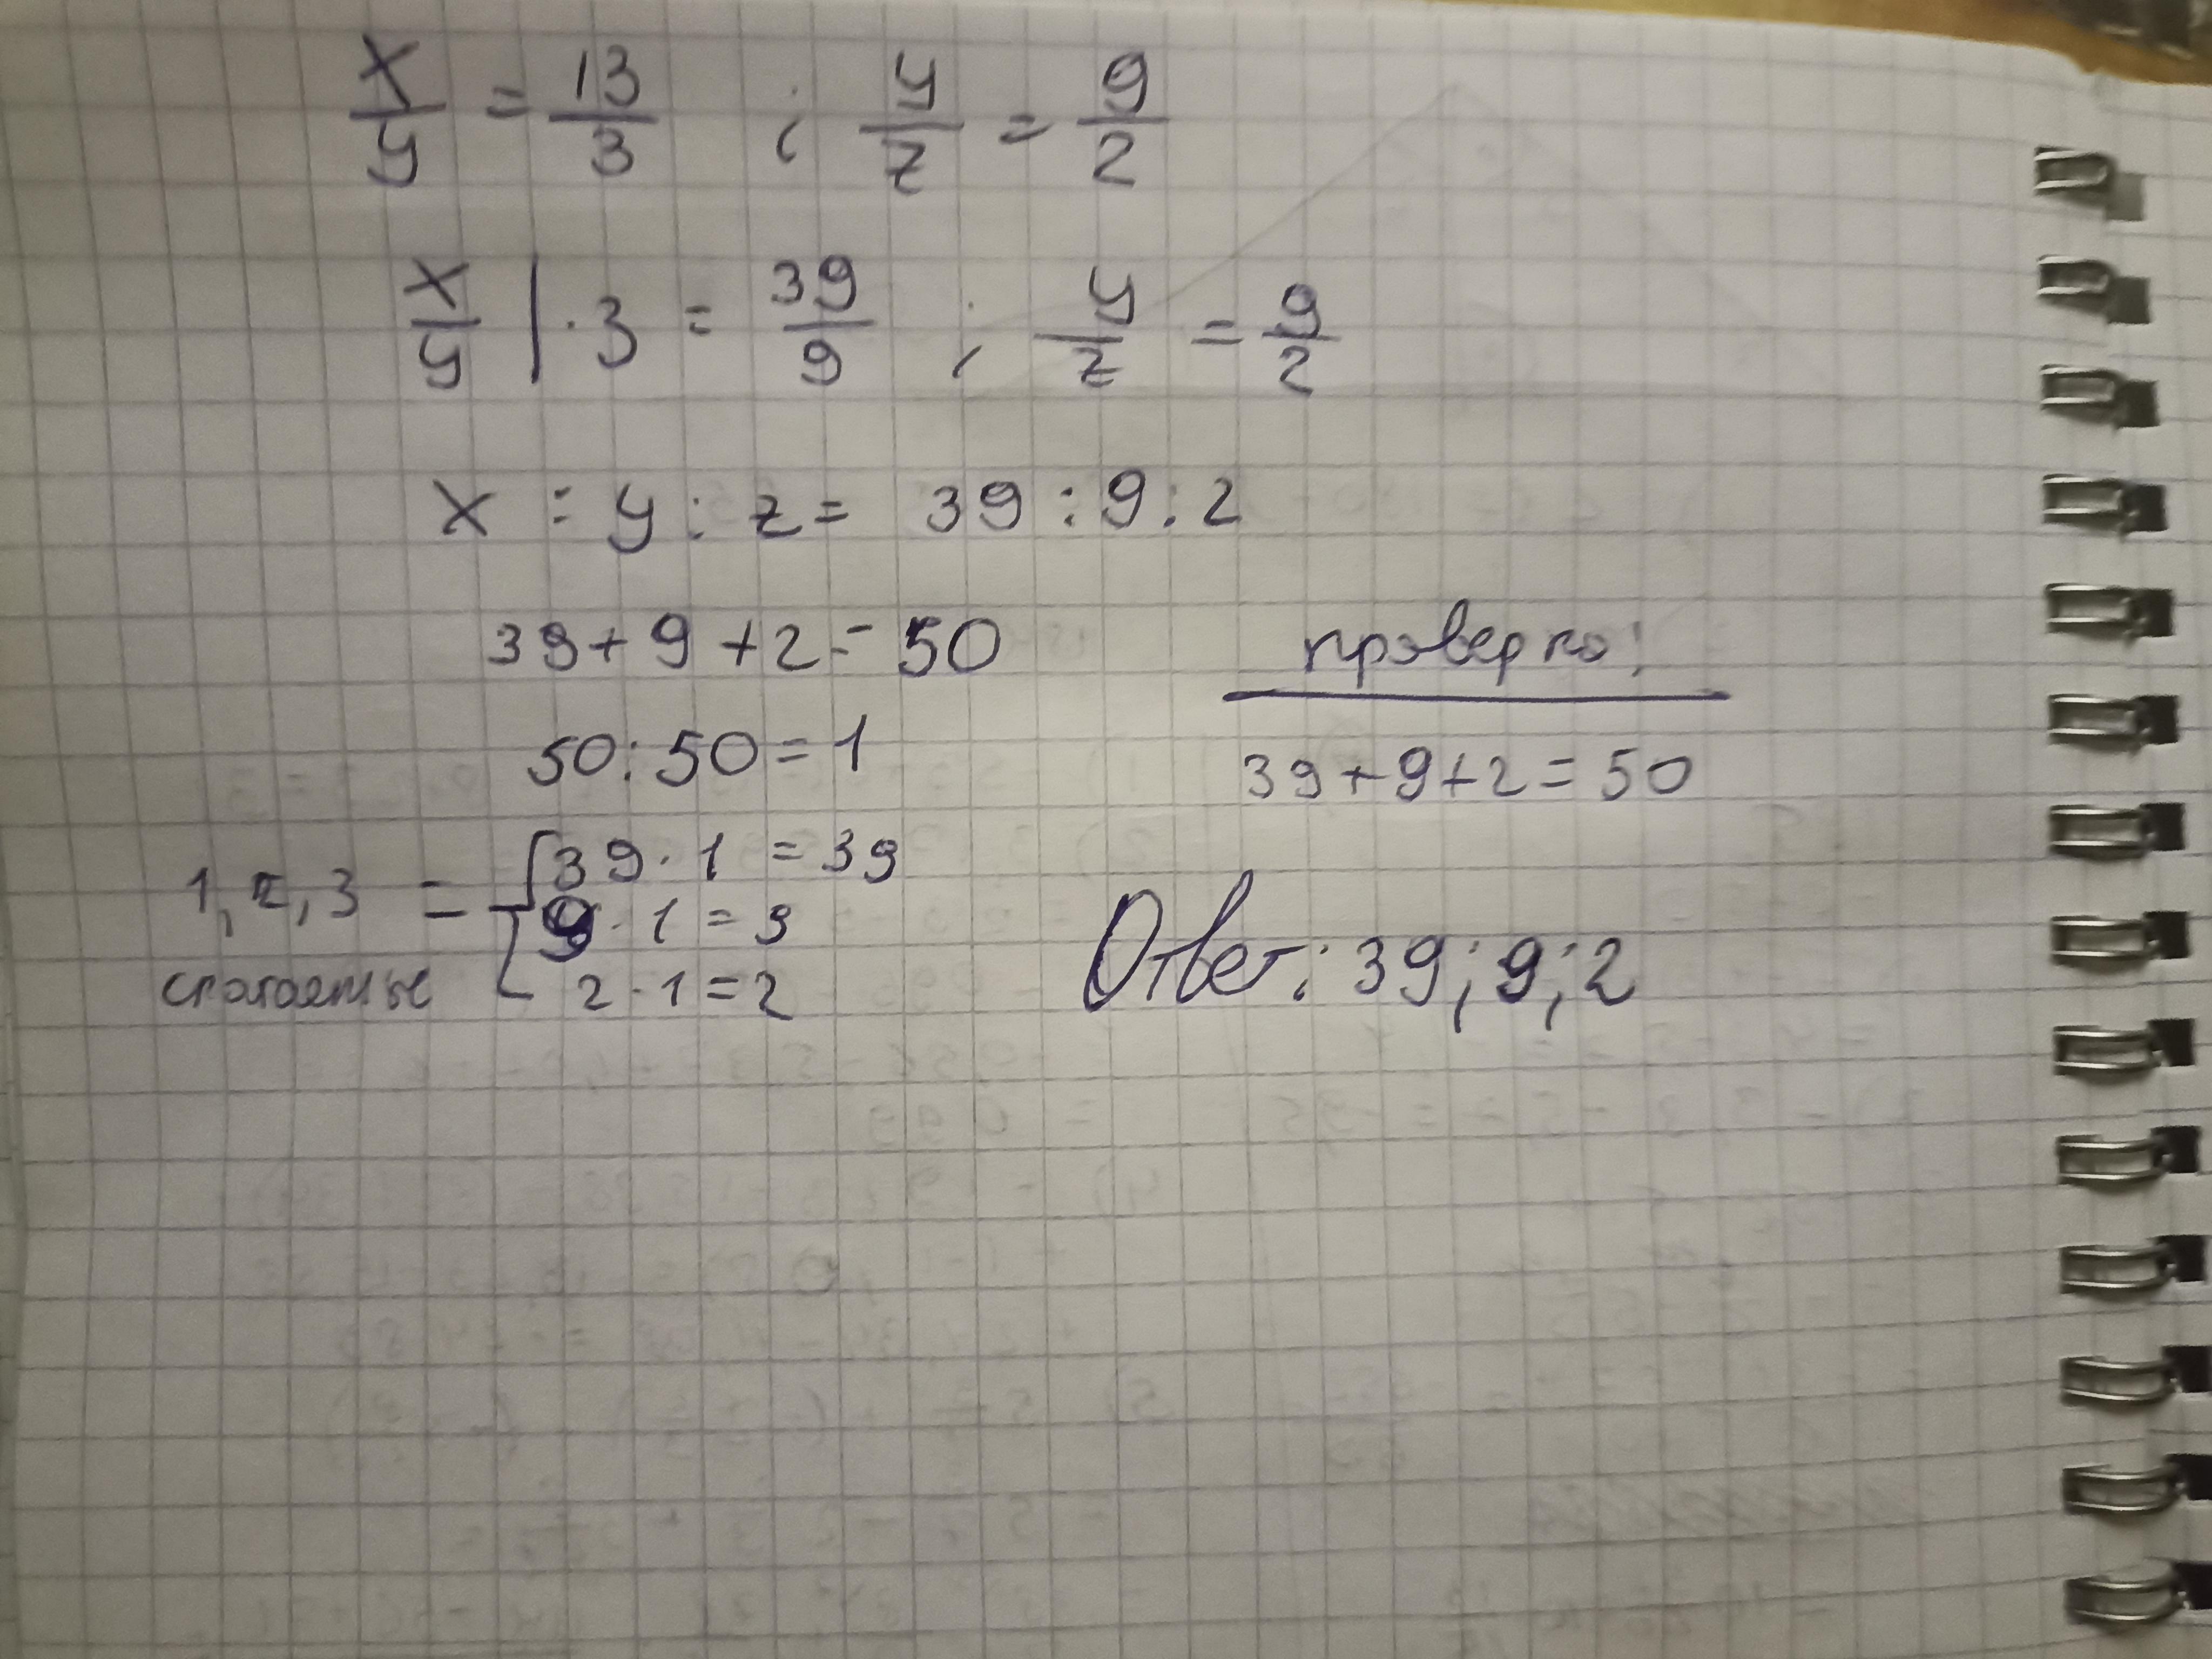 x/y = 13/3 ; y/z = 9/2
x/y | · 3 = 39/9 ; y/z = 9/2
x : y : z = 39 : 9 : 2
39 + 9 + 2 = 50
50 : 50 = 1
1, 2, 3 =
39 · 1 = 39
9 · 1 = 9
2 · 1 = 2
проверка:
39 + 9 + 2 = 50
Ответ: 39; 9; 2